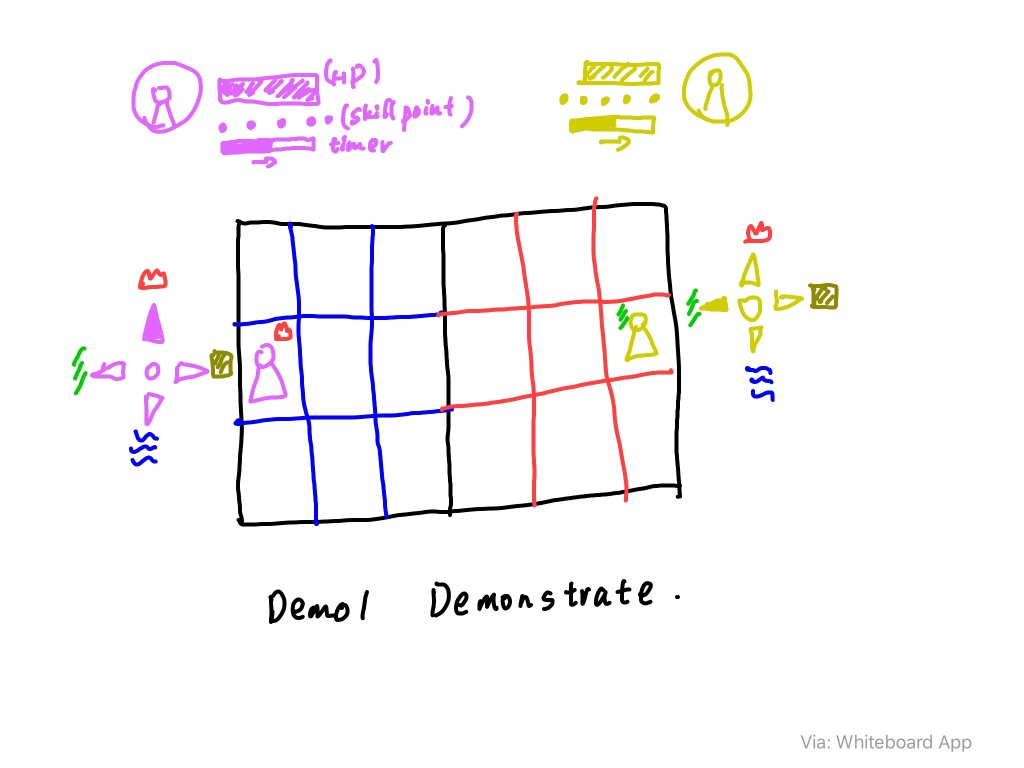 (HP)
(skill point)
timer
Demo1 Demonstrate.
Via: Whiteboard App